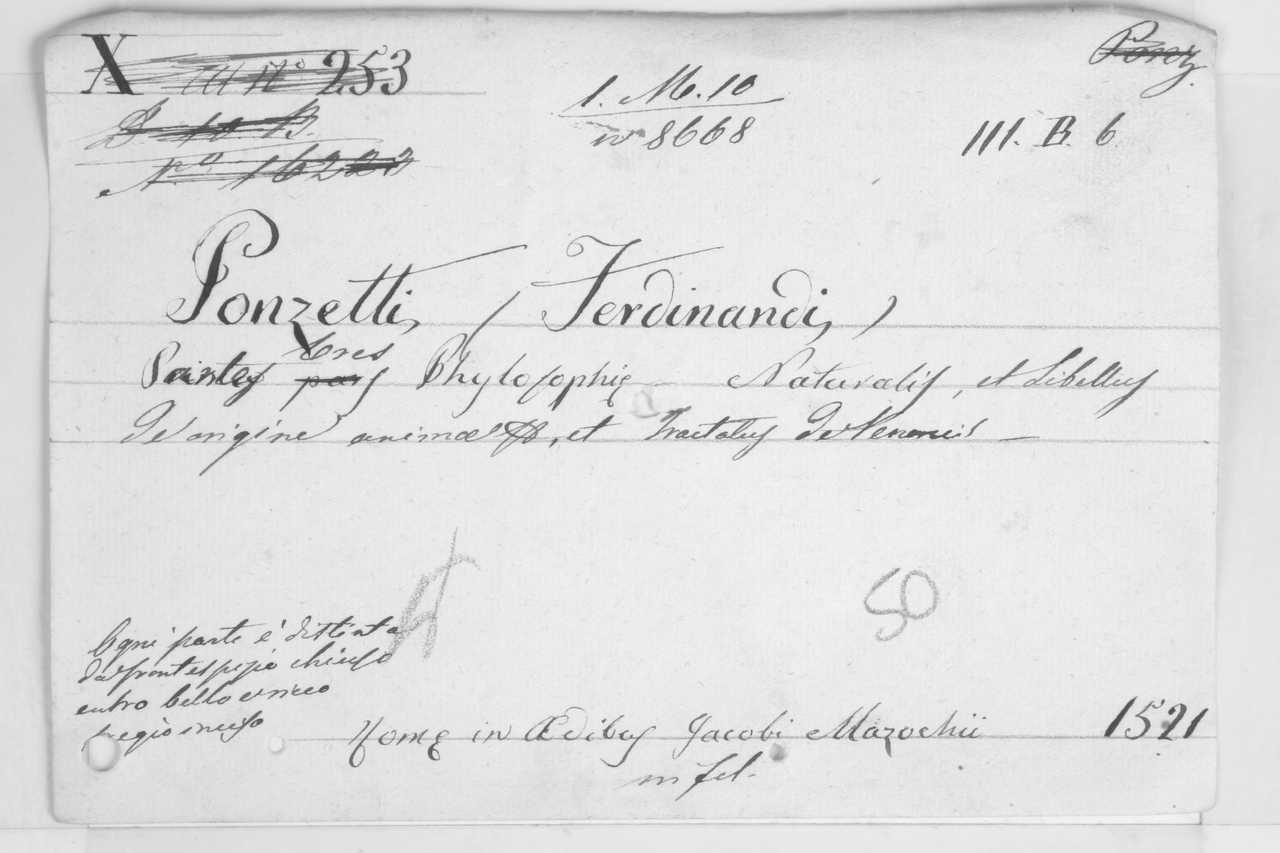 X III N° 253
D 10 B.
N.° 16222
1. M. 10
n° 8668
Porez
III. B. 6
Ponzetti, (Ferdinandi,)
tres
Partes pars Phylosophię Naturalis, et Libellus
De origine animæ, et Tractatus de Venenis
50
Ogni parte è distinta
da frontespizio chiuso
entro bello e ricco
fregio inciso
Romę in Ædibus Jacobi Mazochii 1521
in fol.